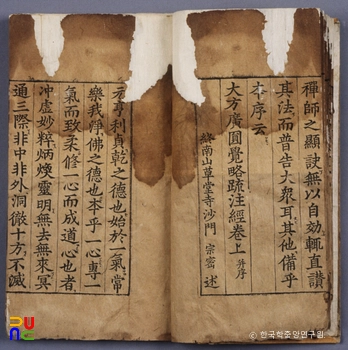 禪師之顯訣無以自効輒直讃
其法而普告大衆耳其他備乎
本序云
大方廣圓覺略䟽注經卷上 并序
終南山草堂寺沙門 宗密 述
元亨利貞乾之德也始於一氣常
樂我淨佛之德也本乎一心專一
氣而致柔修一心而成道心也者
冲虛妙粹炳煥靈明無去無來冥
通三際非中非外洞徹十方不滅
© 한국학중앙연구원